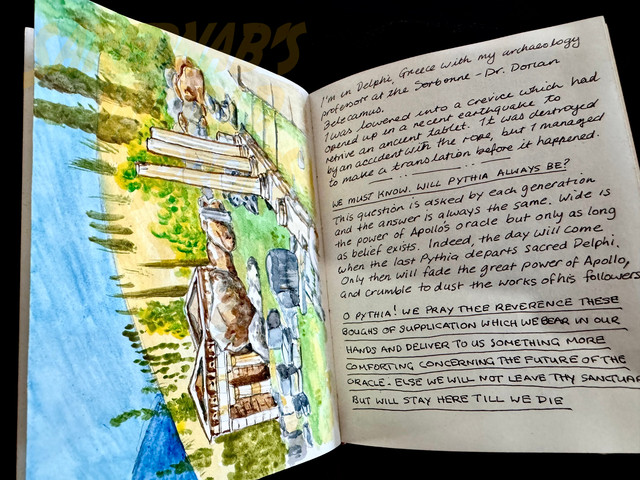 I'm in Delphi, Greece with my archaeology
professor at the Sorbonne - Dr. Dorian
Zelecamus.
I was lowered into a crevice which had
opened up in a recent earthquake to
retrive an ancient tablet. It was destroyed
by an accident with the rope, but I managed
to make a translation before it happened.
WE MUST KNOW. WILL PYTHIA ALWAYS BE?
This question is asked by each generation
and the answer is always the same. Wide is
the power of Apollo's oracle but only as long
as belief exists. Indeed, the day will come
when the last Pythia departs Sacred Delphi.
Only then will fade the great power of Apollo,
and crumble to dust the works of his followers
O PYTHIA! WE PRAY THEE REVERENCE THESE
BOUGHS OF SUPPLICATION WHICH WE BEAR IN OUR
HANDS AND DELIVER TO US SOMETHING MORE
COMFORTING CONCERNING THE FUTURE OF THE
ORACLE - ELSE WE WILL NOT LEAVE THY SANCTUAR
BUT WILL STAY HERE TILL WE DIE